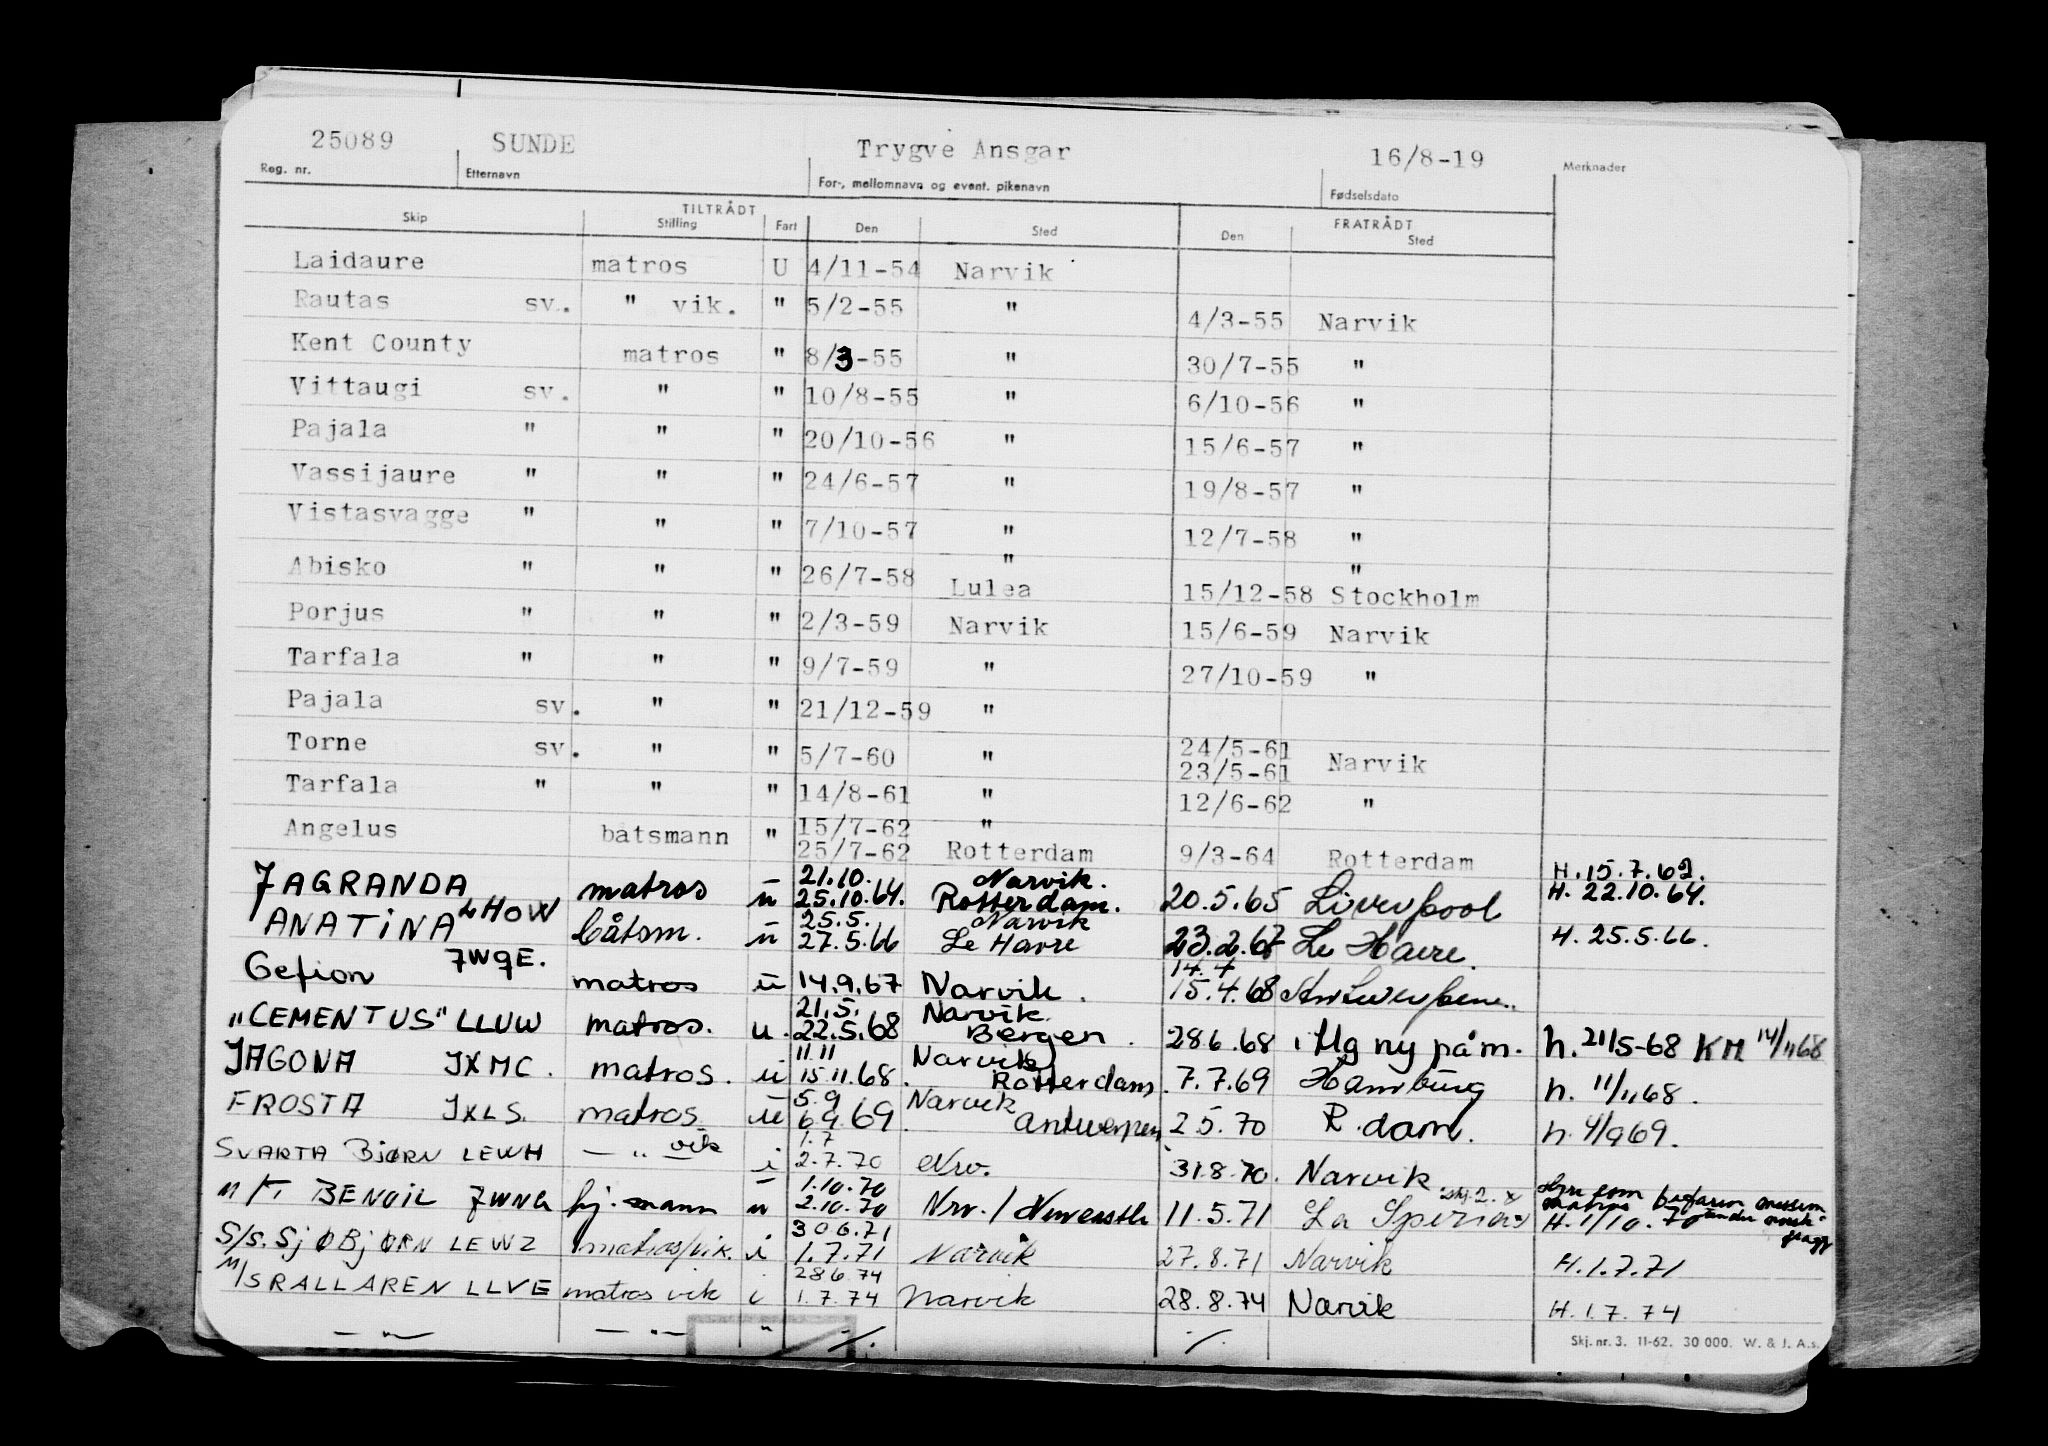 25089 SUNDE Trygve Ansgar 16/8-19
Reg. nr. Etternavn For-, mellomnavn og event. pikenavn Fødselsdato Merknader
TILTRÅDT FRATRÅDT
Skip Stilling Fart Den Sted Den Sted
Laidaure matros U 4/11-54 Narvik
Rautas sv. " vik. " 5/2-55 " 4/3-55 Narvik
Kent County matros " 8/3-55 " 30/7-55 "
Vittaugi sv. " " 10/8-55 " 6/10-56 "
Pajala " " " 20/10-56 " 15/6-57 "
Vassijaure " " " 24/6-57 " 19/8-57 "
Vistasvagge " " " 7/10-57 " 12/7-58 "
" "
Abisko " " " 26/7-58 Lulea 15/12-58 Stockholm
Porjus " " " 2/3-59 Narvik 15/6-59 Narvik
Tarfala " " " 9/7-59 " 27/10-59 "
Pajala sv. " " 21/12-59 "
24/5-61
Torne sv. " " 5/7-60 " 23/5-61 Narvik
Tarfala " " " 14/8-61 " 12/6-62 "
15/7-62 "
Angelus batsmann " 25/7-62 Rotterdam 9/3-64 Rotterdam H. 15.7.62.
21.10. Narvik.
JAGRANDA matros u 25.10.64. Rotterdam. 20.5.65 Liverpool H. 22.10.64.
LHOW 25.5. Narvik
ANATINA båtsm. u 27.5.66 Le Havre 23.2.67 Le Havre. H. 25.5.66.
14.4
Gefion JWQE. matros u 14.9.67 Narvik. 15.4.68 Antwerpen.
21.5. Narvik.
"CEMENTUS" LLUW matros. u. 22.5.68 Bergen. 28.6.68 i Mg ny påm. h. 21/5-68 KM 14/11 68
11.11 Narvik
JAGONA JXMC. matros. u 15.11.68. Rotterdam. 7.7.69 Hamburg h. 11/11 68.
5.9 Narvik
FROSTA JXLS. matros. u 6.9.69. Antwerpen 2.5.70 R.dam. h. 4/9 69.
1.7
SVARTA BJØRN LEWH — " — vik i 2.7.70 Nrv. 31.8.70. Narvik
1.10.70
M/T BENOIL JWNG hj. mann u 2.10.70 Nrv./Newcastle 11.5.71 La Spezia H. 1/10.70
30.6.71
S/s. SJØBJØRN LEWZ matros/vik. i 1.7.71 Narvik 27.8.71 Narvik H. 1.7.71
28.6.74
M/S RALLAREN LLVE matros vik i 1.7.74 Narvik 28.8.74 Narvik H. 1.7.74
— " — — " — " ./. ./.
Skj. nr. 3. 11-62. 30 000. W. & J. A.s.